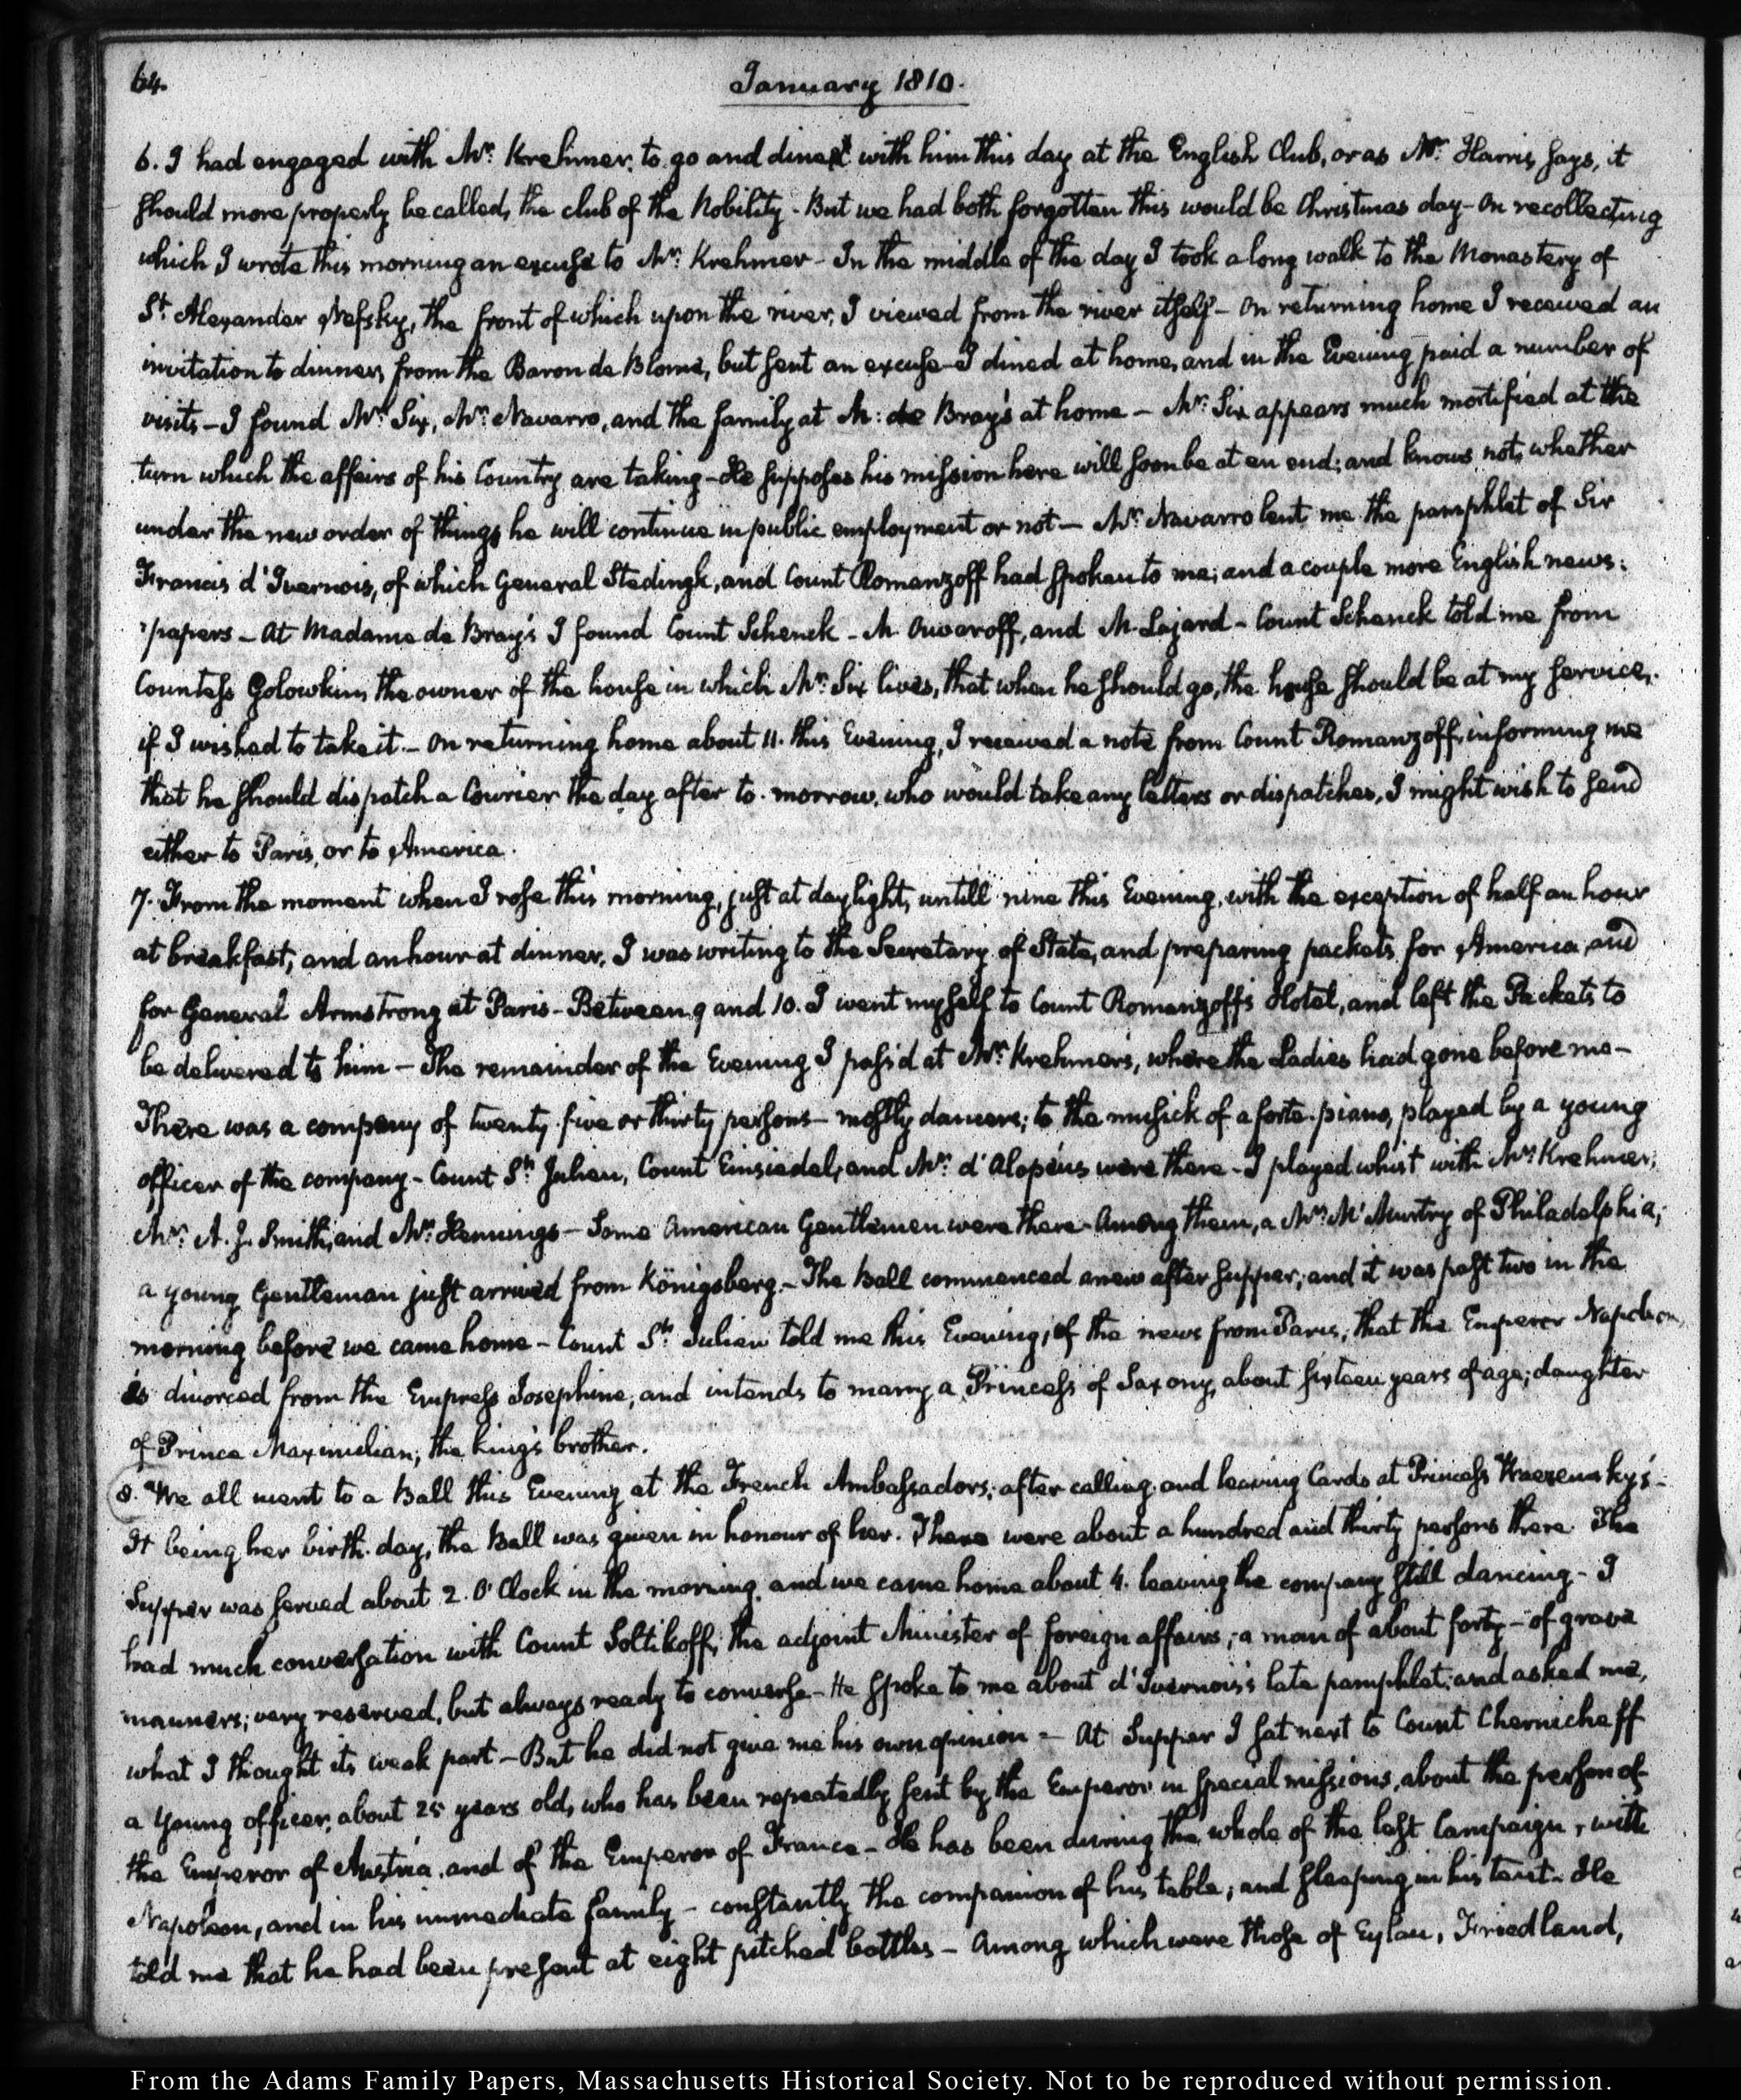 64.
January 1810.
6. I had engaged with Mr. Krehmer, to go and dine with him this day at the English Club, or as Mr. Harris says, it
should more properly be called, the club of the Nobility - But we had both forgotten this would be Christmas day - On recollecting
which I wrote this morning an excuse to Mr. Krehmer - In the middle of the day I took a long walk to the Monastery of
St. Alexander Nefsky, the front of which upon the river, I viewed from the river itself - On returning home I received an
invitation to dinner, from the Baron de Blome, but sent an excuse - I dined at home, and in the Evening paid a number of
visits - I found Mr. Six, Mr. Navarro, and the family at M: de Bray's at home - Mr. Six appears much mortified at the
turn which the affairs of his Country are taking - He supposes his mission here will soon be at an end; and knows not, whether
under the new order of things he will continue in public employment or not - Mr. Navarro lent me the pamphlet of Sir
Francis d'Ivernois, of which General Stedingk, and Count Romanzoff had spoken to me; and a couple more English news-
papers - At Madame de Bray's I found Count Schenck - M. Ouwaroff, and M. Lajard - Count Schenck told me from
Countess Golowkin, the owner of the house in which Mr. Six lives, that when he should go, the house should be at my service,
if I wished to take it. - On returning home about 11. this Evening, I received a note from Count Romanzoff, informing me
that he should dispatch a Courier the day after to-morrow, who would take any letters or dispatches, I might wish to send
either to Paris, or to America.
7. From the moment when I rose this morning, just at daylight, untill nine this Evening, with the exception of half an hour
at breakfast, and an hour at dinner, I was writing to the Secretary of State, and preparing packets for America, and
for General Armstrong at Paris - Between 9 and 10. I went myself to Count Romanzoff's Hotel, and left the Packets to
be delivered to him - The remainder of the Evening I pass'd at Mr. Krehmer's, where the Ladies had gone before me -
There was a company of twenty-five or thirty persons - mostly dancers; to the musick of a forte-piano, played by a young
officer of the company - Count St. Julien, Count Einsiedel, and Mr. d'Alopeus were there - I played whist with Mr. Krehmer,
Mr. A. J. Smith, and Mr. Hennings - Some American Gentlemen were there - Among them, a Mr. McMurtry of Philadelphia;
a young Gentleman just arrived from Königsberg. - The Ball commenced anew after supper; and it was past two in the
morning before we came home - Count St. Julien told me this Evening, of the news from Paris, that the Emperor Napoleon,
is divorced from the Empress Josephine, and intends to marry a Princess of Saxony, about sixteen years of age; daughter
of Prince Maximilian, the king's brother.
8. We all went to a Ball this Evening at the French Ambassadors, after calling, and leaving Cards at Princess Wiazemsky's -
It being her birth-day, the Ball was given in honour of her. There were about a hundred and thirty persons there. The
Supper was served about 2. O'Clock in the morning, and we came home about 4. leaving the company still dancing - I
had much conversation with Count Soltikoff, the adjoint Minister of foreign affairs; a man of about forty - of grave
manners; very reserved, but always ready to converse - He spoke to me about d'Ivernois's late pamphlet; and asked me,
what I thought its weak part - But he did not give me his own opinion - At Supper I sat next to Count Chernicheff
a young officer, about 25 years old, who has been repeatedly sent by the Emperor in special missions, about the person of
the Emperor of Austria, and of the Emperor of France - He has been during the whole of the last Campaign, with
Napoleon, and in his immediate family - constantly the companion of his table, and sleeping in his tent - He
told me that he had been present at eight pitched battles - Among which were those of Eylau, Friedland,
From the Adams Family Papers, Massachusetts Historical Society. Not to be reproduced without permission.